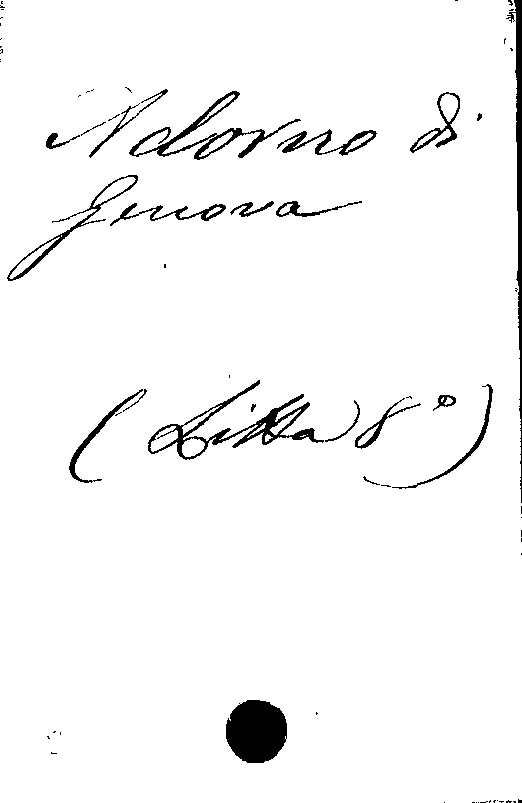 Adorno di
Genova
(Litta 8°)